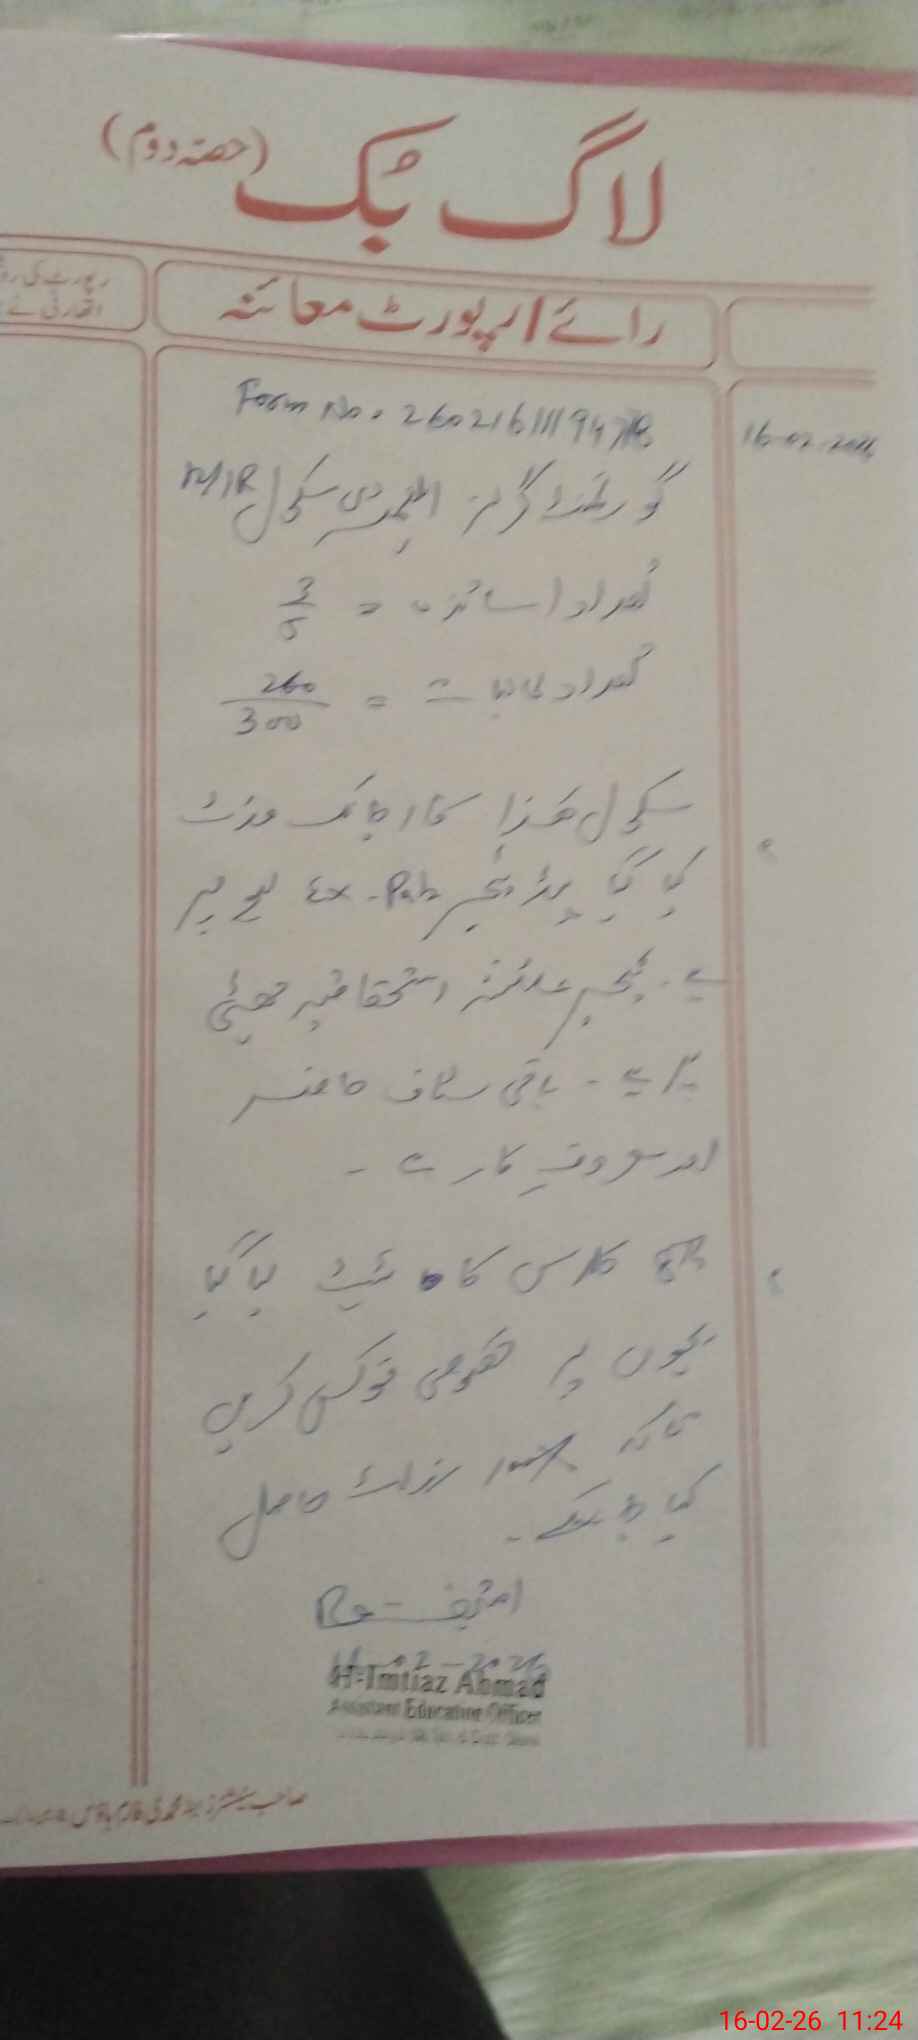 لاگ بک (حصہ دوم)
رائے / رپورٹ معائنہ
رپورٹ کی
اتھارٹی نے
16-02-2026
Form No. 260216111947
گورنمنٹ گرلز ایلیمنٹری سکول
تعداد اساتذہ = 3/5
تعداد طالبات = 260/300
سکول ھذا کا اچانک وزٹ
کیا گیا ہیڈ ٹیچر Ex-Pak لیو پر
ہے۔ ٹیچر اتفاقیہ چھٹی
پر ہے۔ باقی سٹاف حاضر
اور مصروف کار ہے۔
کلاس کا ٹیسٹ لیا گیا
بچوں پر خصوصی فوکس کریں
تاکہ 100% رزلٹ حاصل
کیا جا سکے۔
02-2026
H. Imtiaz Ahmad
Assistant Education Officer
16-02-26 11:24